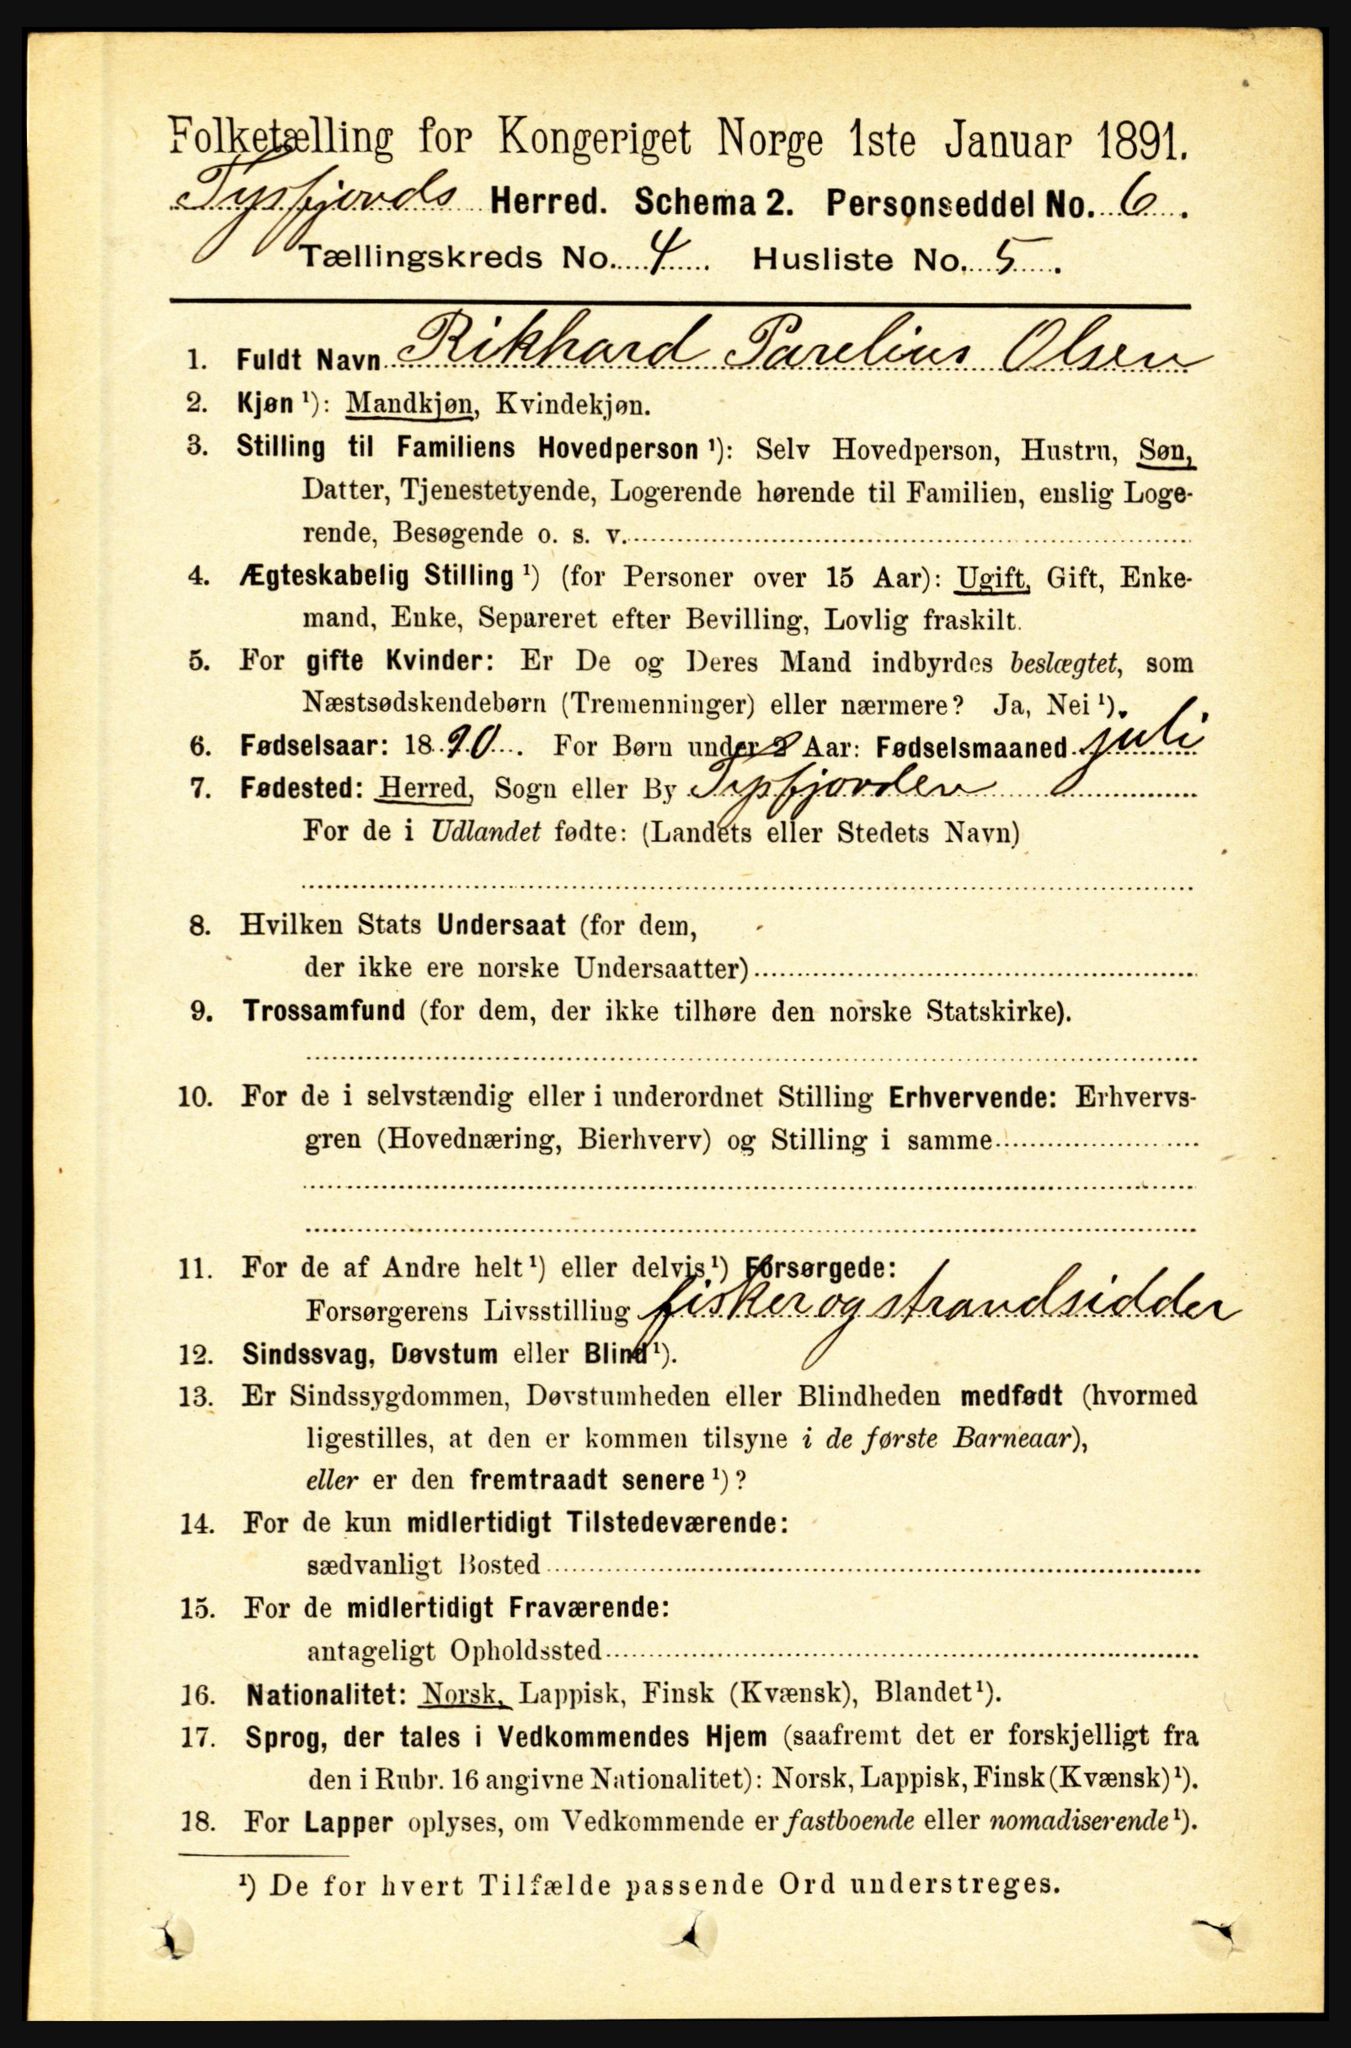 Folketælling for Kongeriget Norge 1ste Januar 1891.
Tysfjords Herred. Schema 2. Personseddel No. 6.
Tællingskreds No. 4 Husliste No. 5.
1. Fuldt Navn Rikhard Parelius Olsen
2. Kjøn ¹): Mandkjøn, Kvindekjøn.
3. Stilling til Familiens Hovedperson ¹): Selv Hovedperson, Hustru, Søn,
Datter, Tjenestetyende, Logerende hørende til Familien, enslig Loge-
rende, Besøgende o. s. v.
4. Ægteskabelig Stilling ¹) (for Personer over 15 Aar): Ugift, Gift, Enke-
mand, Enke, Separeret efter Bevilling, Lovlig fraskilt.
5. For gifte Kvinder: Er De og Deres Mand indbyrdes beslægtet, som
Næstsødskendebørn (Tremenninger) eller nærmere? Ja, Nei ¹).
6. Fødselsaar: 1890. For Børn under 2 Aar: Fødselsmaaned juli
7. Fødested: Herred, Sogn eller By Tysfjorden
For de i Udlandet fødte: (Landets eller Stedets Navn)
8. Hvilken Stats Undersaat (for dem,
der ikke ere norske Undersaatter)
9. Trossamfund (for dem, der ikke tilhøre den norske Statskirke).
10. For de i selvstændig eller i underordnet Stilling Erhvervende: Erhvervs-
gren (Hovednæring, Bierhverv) og Stilling i samme
11. For de af Andre helt ¹) eller delvis ¹) Forsørgede:
Forsørgerens Livsstilling fisker og strandsidder
12. Sindssvag, Døvstum eller Blind ¹).
13. Er Sindssygdommen, Døvstumheden eller Blindheden medfødt (hvormed
ligestilles, at den er kommen tilsyne i de første Barneaar),
eller er den fremtraadt senere ¹)?
14. For de kun midlertidigt Tilstedeværende:
sædvanligt Bosted
15. For de midlertidigt Fraværende:
antageligt Opholdssted
16. Nationalitet: Norsk, Lappisk, Finsk (Kvænsk), Blandet ¹).
17. Sprog, der tales i Vedkommendes Hjem (saafremt det er forskjelligt fra
den i Rubr. 16 angivne Nationalitet): Norsk, Lappisk, Finsk (Kvænsk) ¹).
18. For Lapper oplyses, om Vedkommende er fastboende eller nomadiserende ¹).
¹) De for hvert Tilfælde passende Ord understreges.